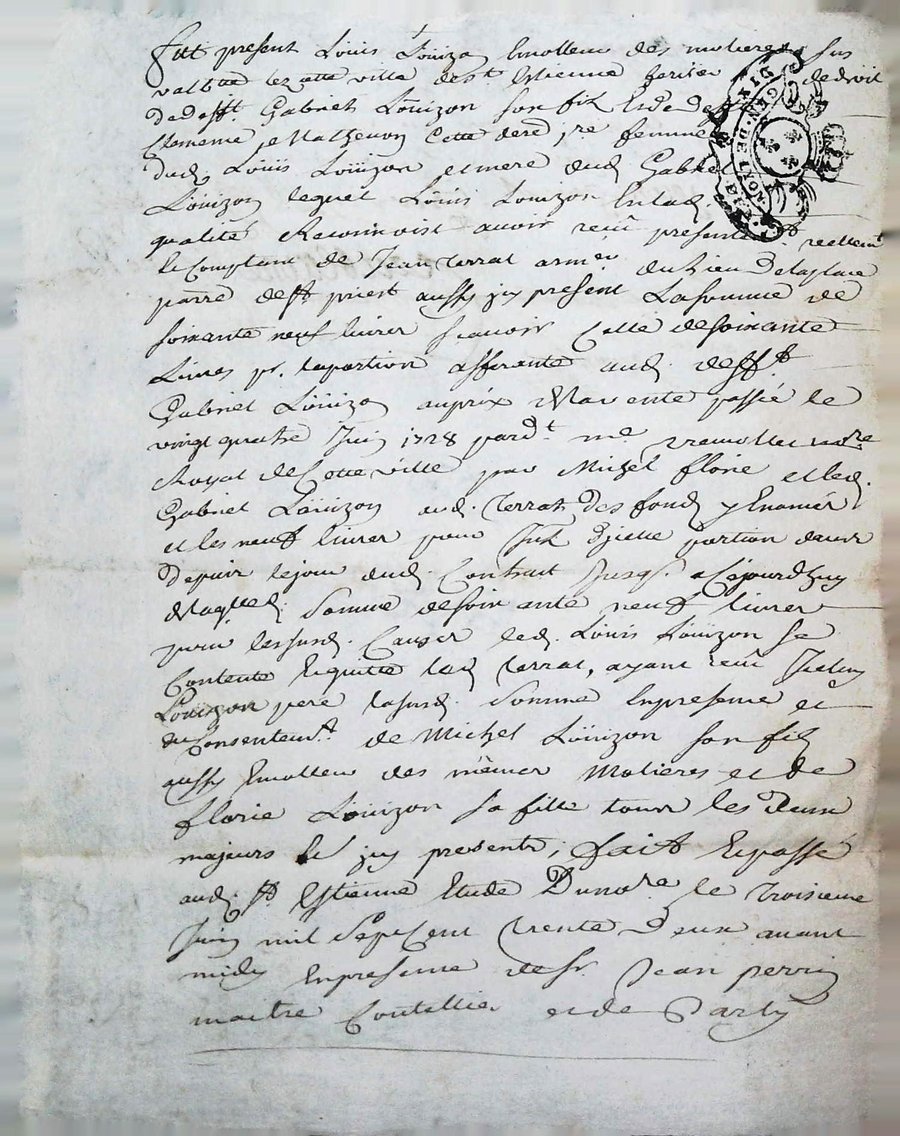 Fut present Louis Loüizon Emolleur des molieres, sus
valbte lez cette ville de st. Estienne heritier de droit
de defft. Gabriel Loüizon son filz Et de defft
Clemence Matheuon Cette dere. pre femme
dud. Loüis Loüizon et mere dud. Gabriel
Loüizon lequel Loüis Loüizon En lad.
qualité Reconnoist avoir reçû presentet. et reellemt.
Le Comptant de Jean Terrat armeur du Lieu de la place
parre. de st. priest aussy jcy present La somme de
soixante neuf livres scavoir Celle de soixante
Livres pr. la portion afferante aud. defft.
Gabriel Loüizon au prix de La vente passée le
vingt quatre Juin 1728 pardt. me. vremollet nore.
Royal de Cette ville par Michel florie et led.
Gabriel Loüizon aud. Terrat des fonds y Enoncés
et les neuf livres pour
depuis le jour dud. Contrast jusqs. a Cejourdhuy
De laqlle. Somme de soixante neuf livres
pour les susd. Causes led. Loüis Loüizon se
Contente Et quitte led. Terrat, ayant reçû Icelluy
Loüizon pere lasusd. Somme En presence et
du Consentemt. de Michel Loüizon son filz
aussy Emolleur des mêmes Molieres et de
florie Loüizon sa fille tous les deux
majeurs jcy presents, fait Et passé
aud. st. Estienne Etude Du nore. le Troisieme
Juin mil Sept Cent trente Deux avant
midy En presence de sr. Jean perrin
maitre Coutellier et de Party
DIX DEN
GEN. DE LYON